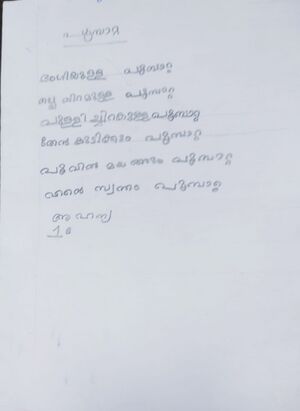 പൂമ്പാറ്റ
ഭംഗിയുള്ള പൂമ്പാറ്റ
നല്ല നിറമുള്ള പൂമ്പാറ്റ
പുള്ളിച്ചിറകുള്ള പൂമ്പാറ്റ
തേൻ കുടിക്കും പൂമ്പാറ്റ
പൂവിൻ പൂമ്പാറ്റ
എന്റെ സ്വന്തം പൂമ്പാറ്റ
അഹന്യ
1 B